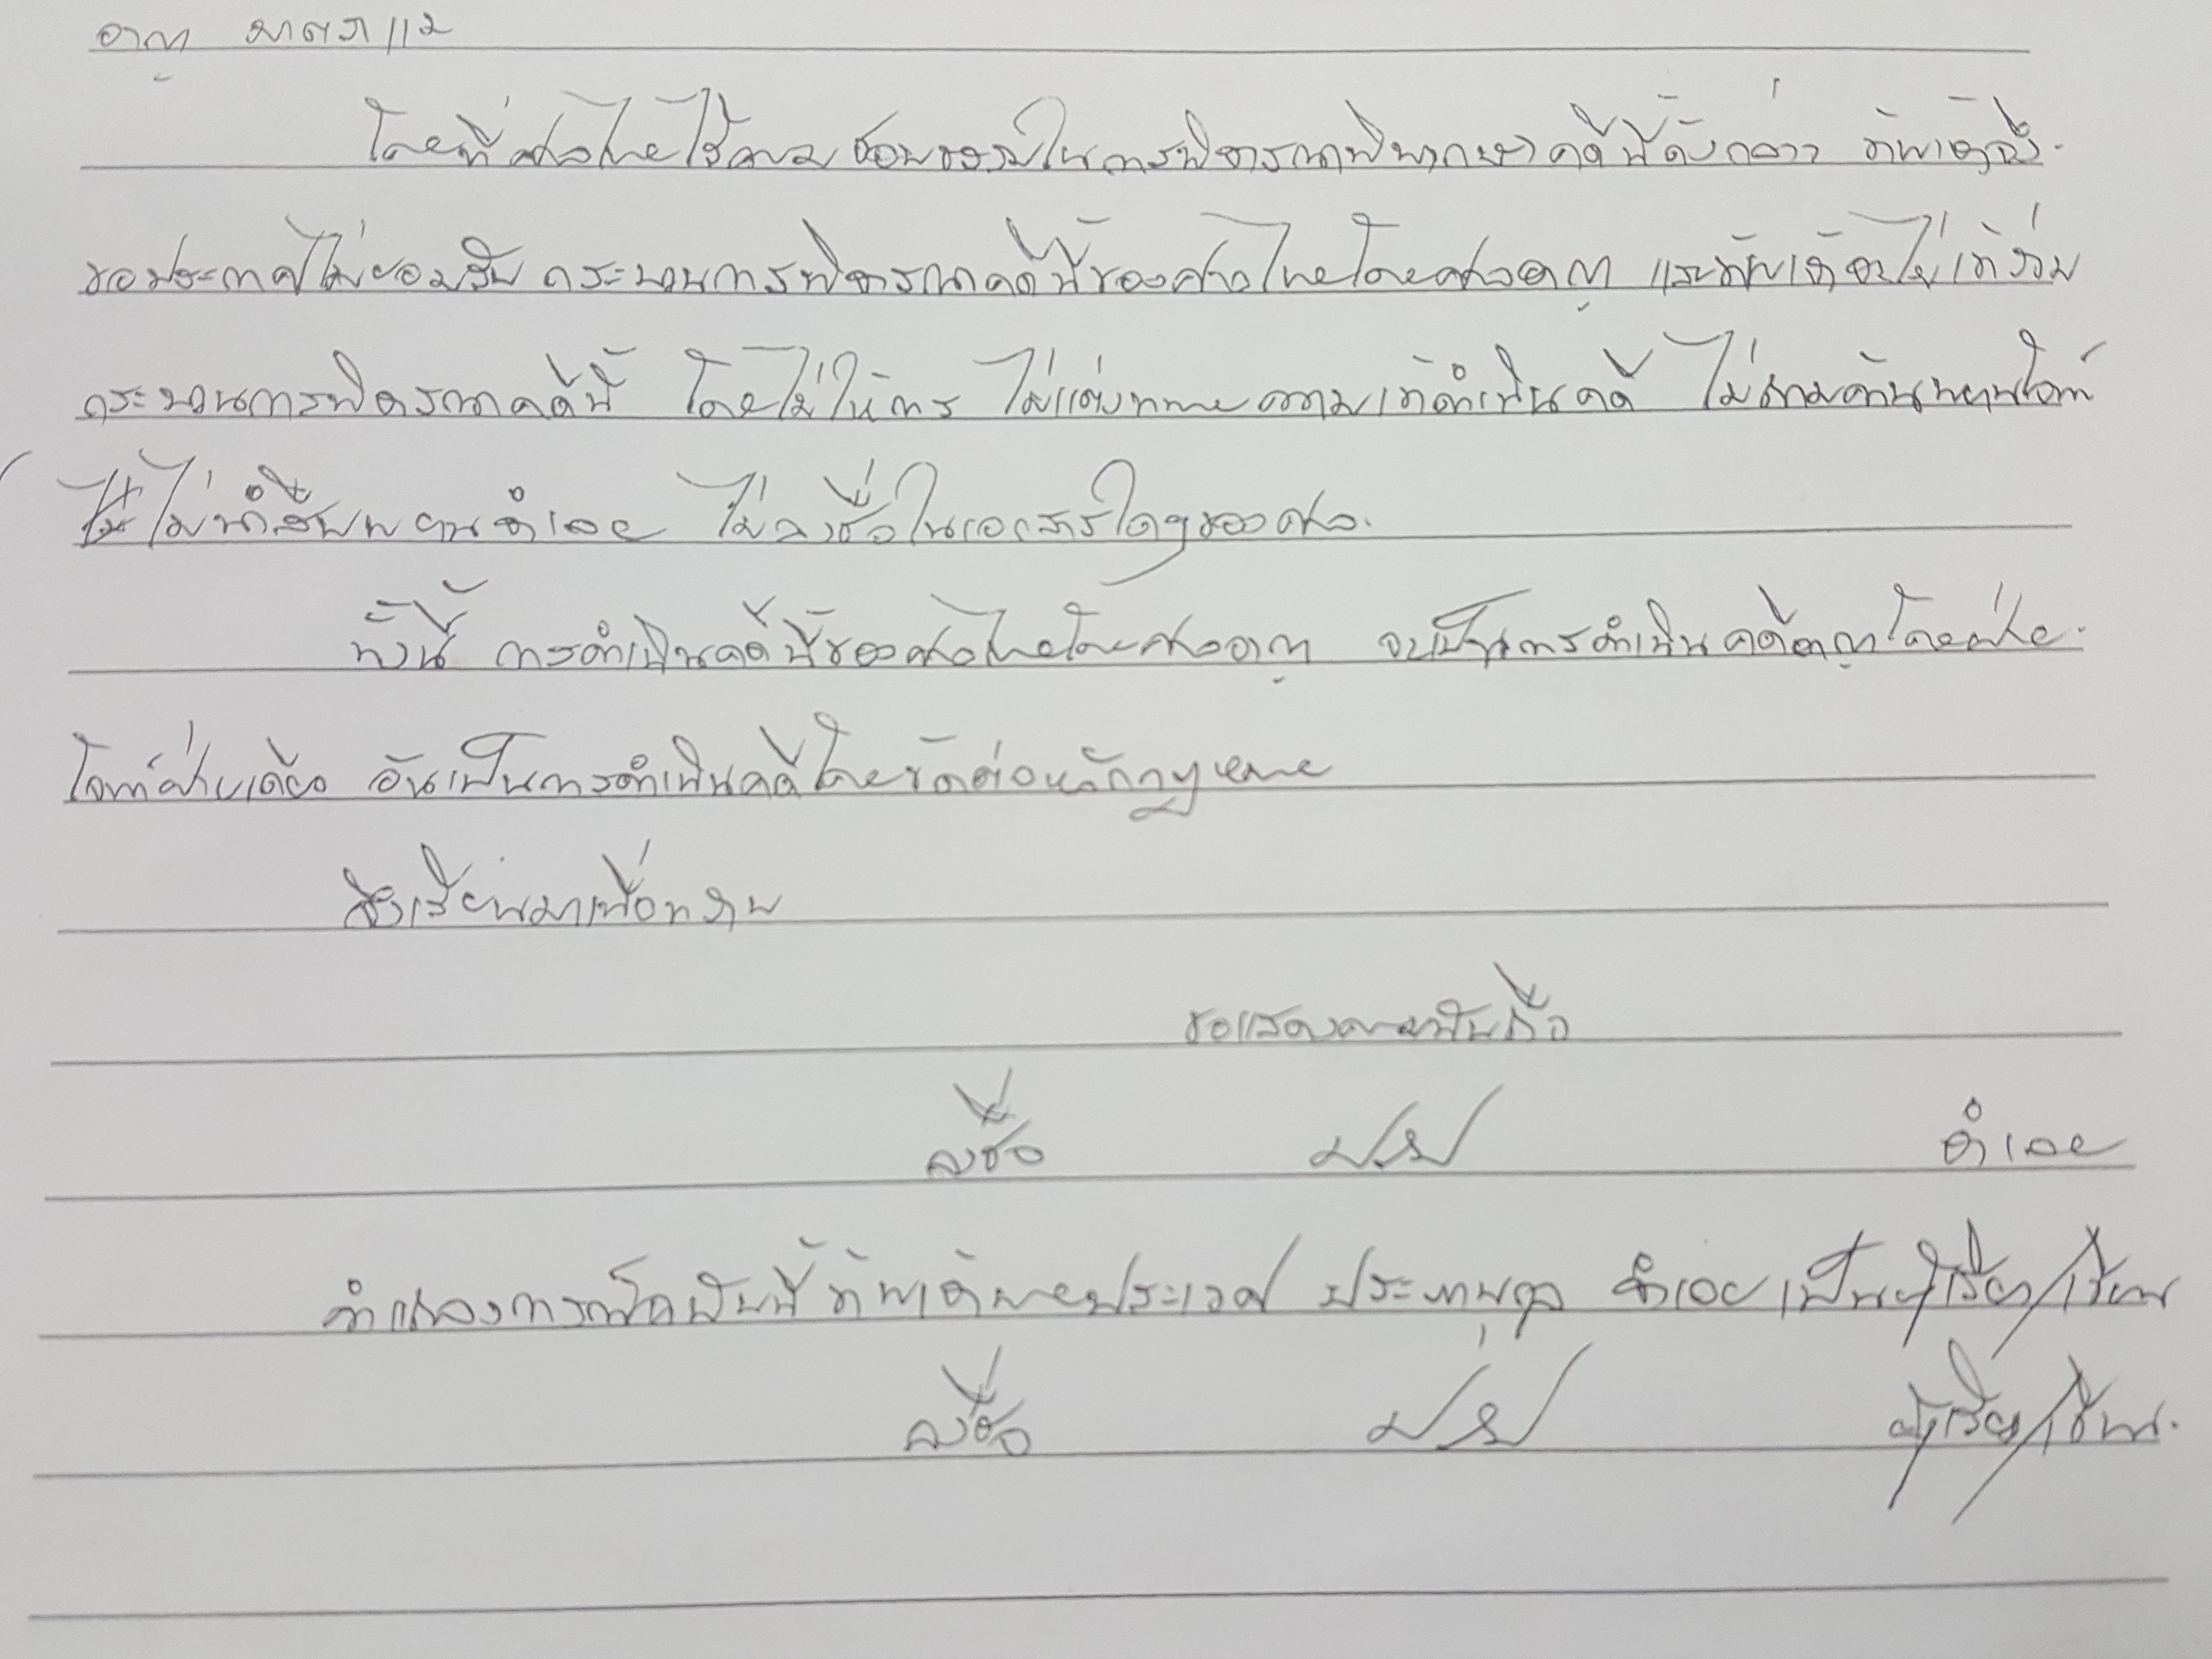 อาญา มาตรา 112
โดยที่ศาลไทยไร้ความชอบธรรมในการพิจารณาพิพากษาคดีนี้ดังกล่าว ข้าพเจ้าจึง
ขอประกาศไม่ยอมรับ กระบวนการพิจารณาคดีนี้ของศาลไทยโดยศาลอาญา และข้าพเจ้าจะไม่เข้าร่วม
กระบวนการพิจารณาคดีนี้ โดยไม่ให้การ ไม่แต่งทนายความเข้าดำเนินคดี ไม่ถามค้านพยานโจทก์
ไม่นำสืบพยานจำเลย ไม่ลงชื่อในเอกสารใดๆของศาล
ทั้งนี้ การดำเนินคดีนี้ของศาลไทยโดยศาลอาญา จะเป็นการดำเนินคดีอาญาโดยฝ่าย
โจทก์ฝ่ายเดียว อันเป็นการดำเนินคดีโดยขัดต่อหลักกฎหมาย
จึงเรียนมาเพื่อทราบ
ขอแสดงความนับถือ
ลงชื่อ จำเลย
คำแถลงการณ์ฉบับนี้ ข้าพเจ้านายประเวศ ประภานุกูล จำเลย เป็นผู้เรียง/เขียน
ลงชื่อ ผู้เรียง/เขียน